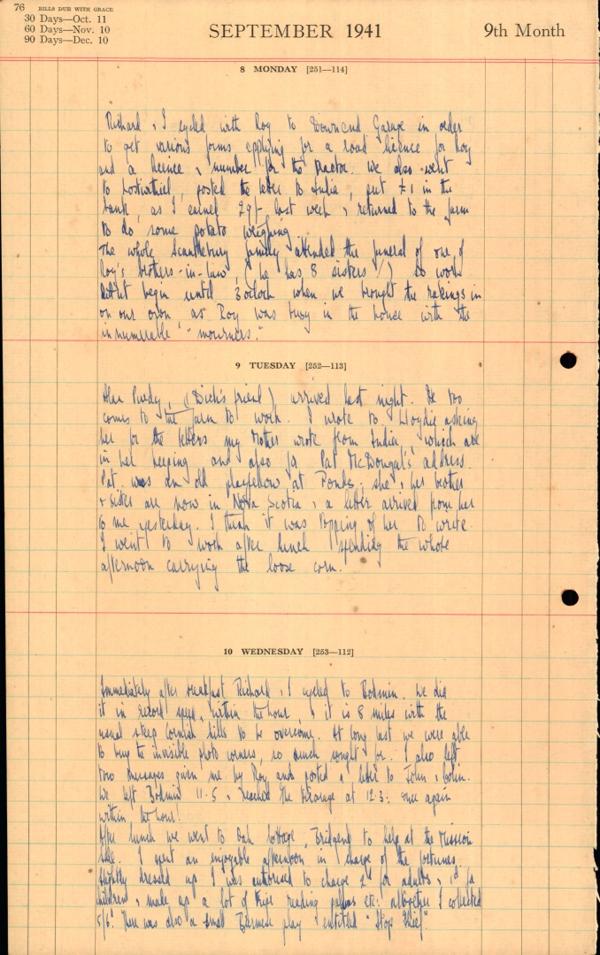 76 BILLS DUE WITH GRACE
30 Days—Oct. 11
60 Days—Nov. 10
90 Days—Dec. 10
SEPTEMBER 1941
9th Month
8 MONDAY [251—114]
Richard & I cycled with Roy to Downend Garage in order
to get various forms applying for a road licence for Roy
and a licence & number for the tractor. We also went
to Lostwithiel, posted the letter to India, put £1 in the
bank, as I earned 29/- last week & returned to the farm
to do some potato weighing.
The whole Scantlebury family attended the funeral of one of
Roy's brothers-in-law, (he has 8 sisters!) so work
didn't begin until 3 o'clock when we brought the rakings in
on our own as Roy was busy in the house with the
innumerable "mourners."
9 TUESDAY [252—113]
Alan Purdy, (Dick's friend) arrived last night. He too
comes to the farm to work. I wrote to asking
her for the letters my Mother wrote from India, which are
in her keeping and also for Pat McDougal's address.
Pat was an old playfellow at Fonds; she & her brother
& sister are now in Nova Scotia & a letter arrived from her
to me yesterday. I think it was topping of her to write.
I went to work after lunch spending the whole
afternoon carrying the loose corn.
10 WEDNESDAY [253—112]
Immediately after breakfast Richard & I cycled to Bodmin. We did
it in record speed, within the hour, & it is 8 miles with the
usual steep Cornish hills to be overcome. At long last we were able
to buy the invisible photo corners, so much sought for. I also left
two messages given me by Roy and posted a letter to John & Colin.
We left Bodmin 11.5 & reached the Vicarage at 12.3: once again
within the hour!
After lunch we went to Oak Cottage, Bridgend to help at the Mission
Sale. I spent an enjoyable afternoon in charge of the fortunes.
Slightly dressed up I was authorised to charge 2d for adults & 1d for
children & made up a lot of tripe reading palms etc: altogether I collected
5/6! There was also a small Burmese play entitled "Stop Thief"